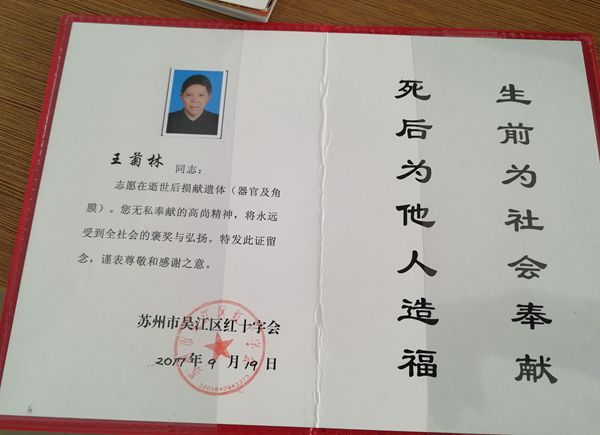 王菊林 同志:
志愿在逝世后损献遗体（器官及角
膜）。您无私奉献的高尚精神，将永远
受到全社会的褒奖与弘扬。特发此证留
念，谨表尊敬和感谢之意。
苏州市吴江区红十字会
2017年9月19日
生前为社会奉献
死后为他人造福